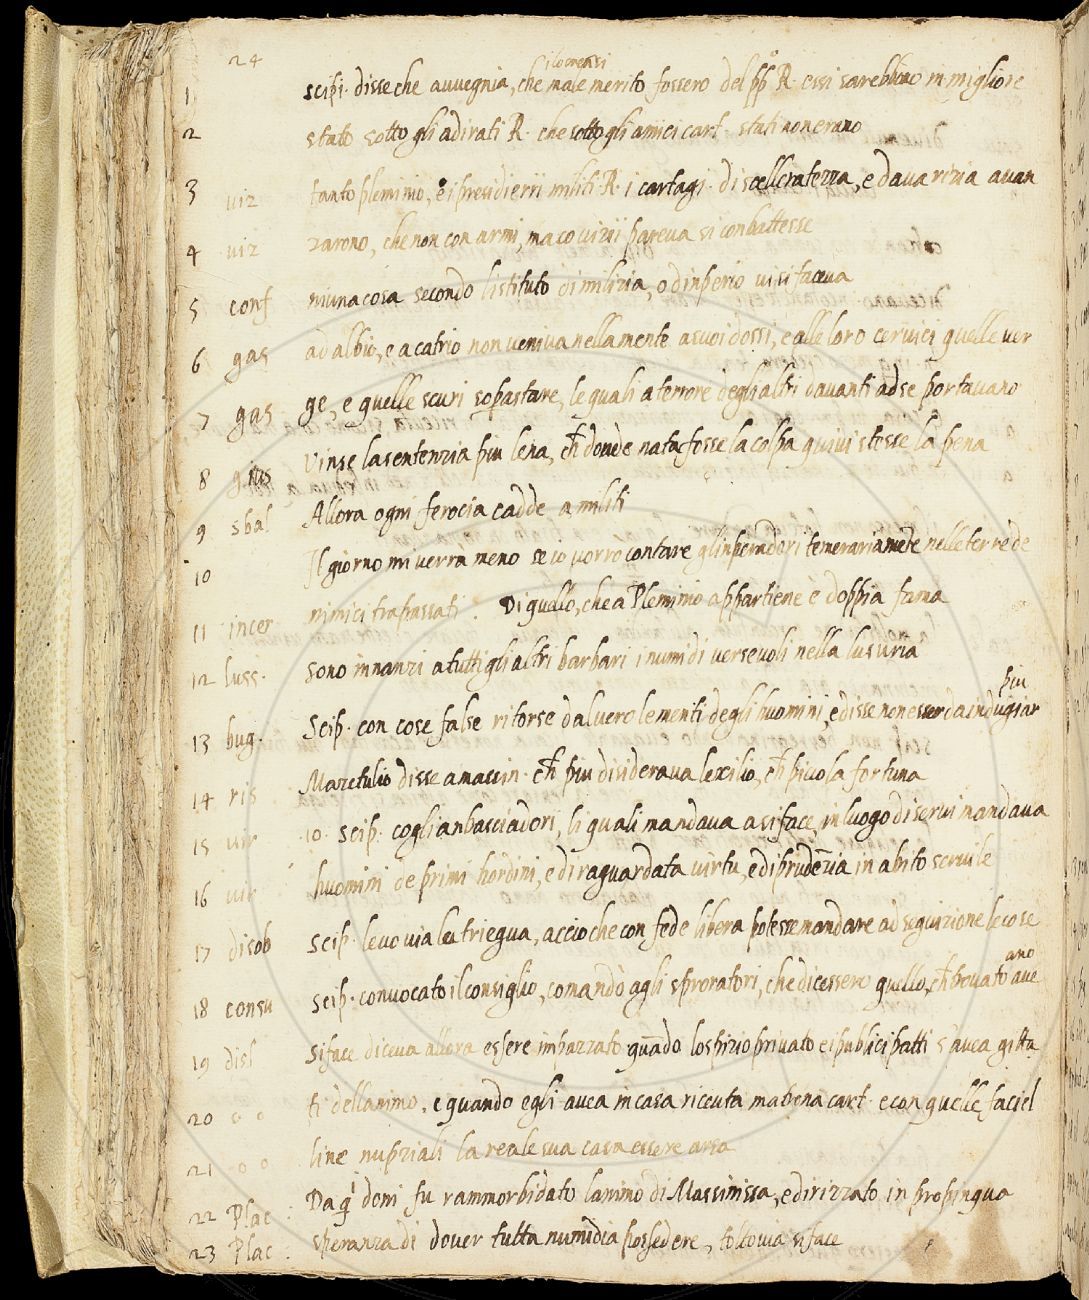 24
i locrensi
1 scipi. disse che avvegnia, che male merito fossero del pp° R. essi sarebbono in migliore
2 stato sotto gli adirati R. che sotto gli amici cart. stati non erano
3 viz tanto pleminio, e i presidierii militi R. i cartagi. di scelleratezza, e davarizia avan
4 viz zarono, che non con armi, ma co vizii pareva si conbattesse
5 conf niuna cosa secondo listituto di milizia, o dinperio vi si faceva
6 gas ad albio, e a catrio non veniva nella mente a suoi dossi, e alle loro cervici quelle ver
7 gas ge, e quelle scuri sopastare, le quali a terrore degli altri davanti ad se portavano
8 gius Vinse la sentenzia piu lena, ch̃ donde nata fosse la colpa quivi stesse la pena
9 sbal Allora ogni ferocia cadde a militi
10 Il giorno mi verra meno se io vorro contare glinperadori temerariamẽte nelle terre de
11 incer nimici trapassati. Di quello, che a Pleminio appartiene è doppia fama
12 luss. sono innanzi a tutti gli altri barbari i numidi versevoli nella lusuria
più
13 bug. Scip. con cose false ritorse dal vero le menti degli huomini, e disse non esser da indugiar
14 ris Marctulio disse a massin. ch̃ piu disiderava lexilio, ch̃ picola fortuna
15 vir 10. Scip. cogli anbasciadori, li quali mandava a siface, in luogo di servi mandava
16 vir huomini de primi hordini, e di raguardata virtu, e di prudẽzia in abito servile
17 disob Scip. levo via la triegua, accio che con fede libera potesse mandare ad seguizione le cose
ano
18 consu Scip. convocato il consiglio, comandò agli sproratori, che dicessero quello, ch̃ trovato ave
19 disl Siface diceva allora essere inpazzato quãdo lospizio privato e i publici patti s'avea gitta
20 o o ti dellanimo, e quando egli avea in casa riceuta matrona cart. e con quelle faciel
21 o o line nupziali la reale sua casa essere arsa
22 Plac. Da q̃i doni fu rammorbidato lanimo di Massinissa, e dirizzato in propinqua
23 Plac. speranza di dover tutta numidia possedere, tolto via siface